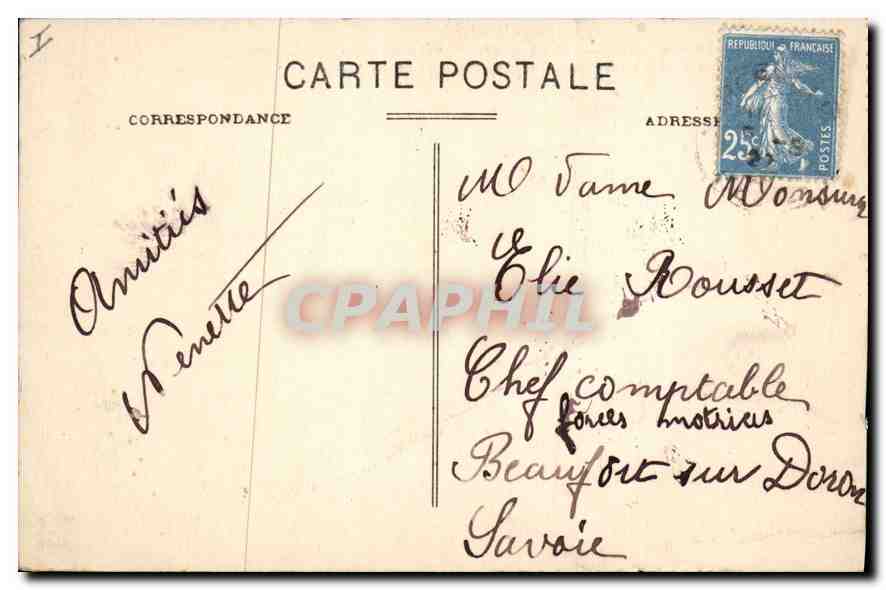 I
CARTE POSTALE
CORRESPONDANCE
ADRESSE
REPUBLIQUE FRANÇAISE
25c
POSTES
Amitiés
Nenette
M Dame Monsieur
Elie Rousset
Chef comptable
forces motrices
Beaufort sur Doron
Savoie
CPAPHIL